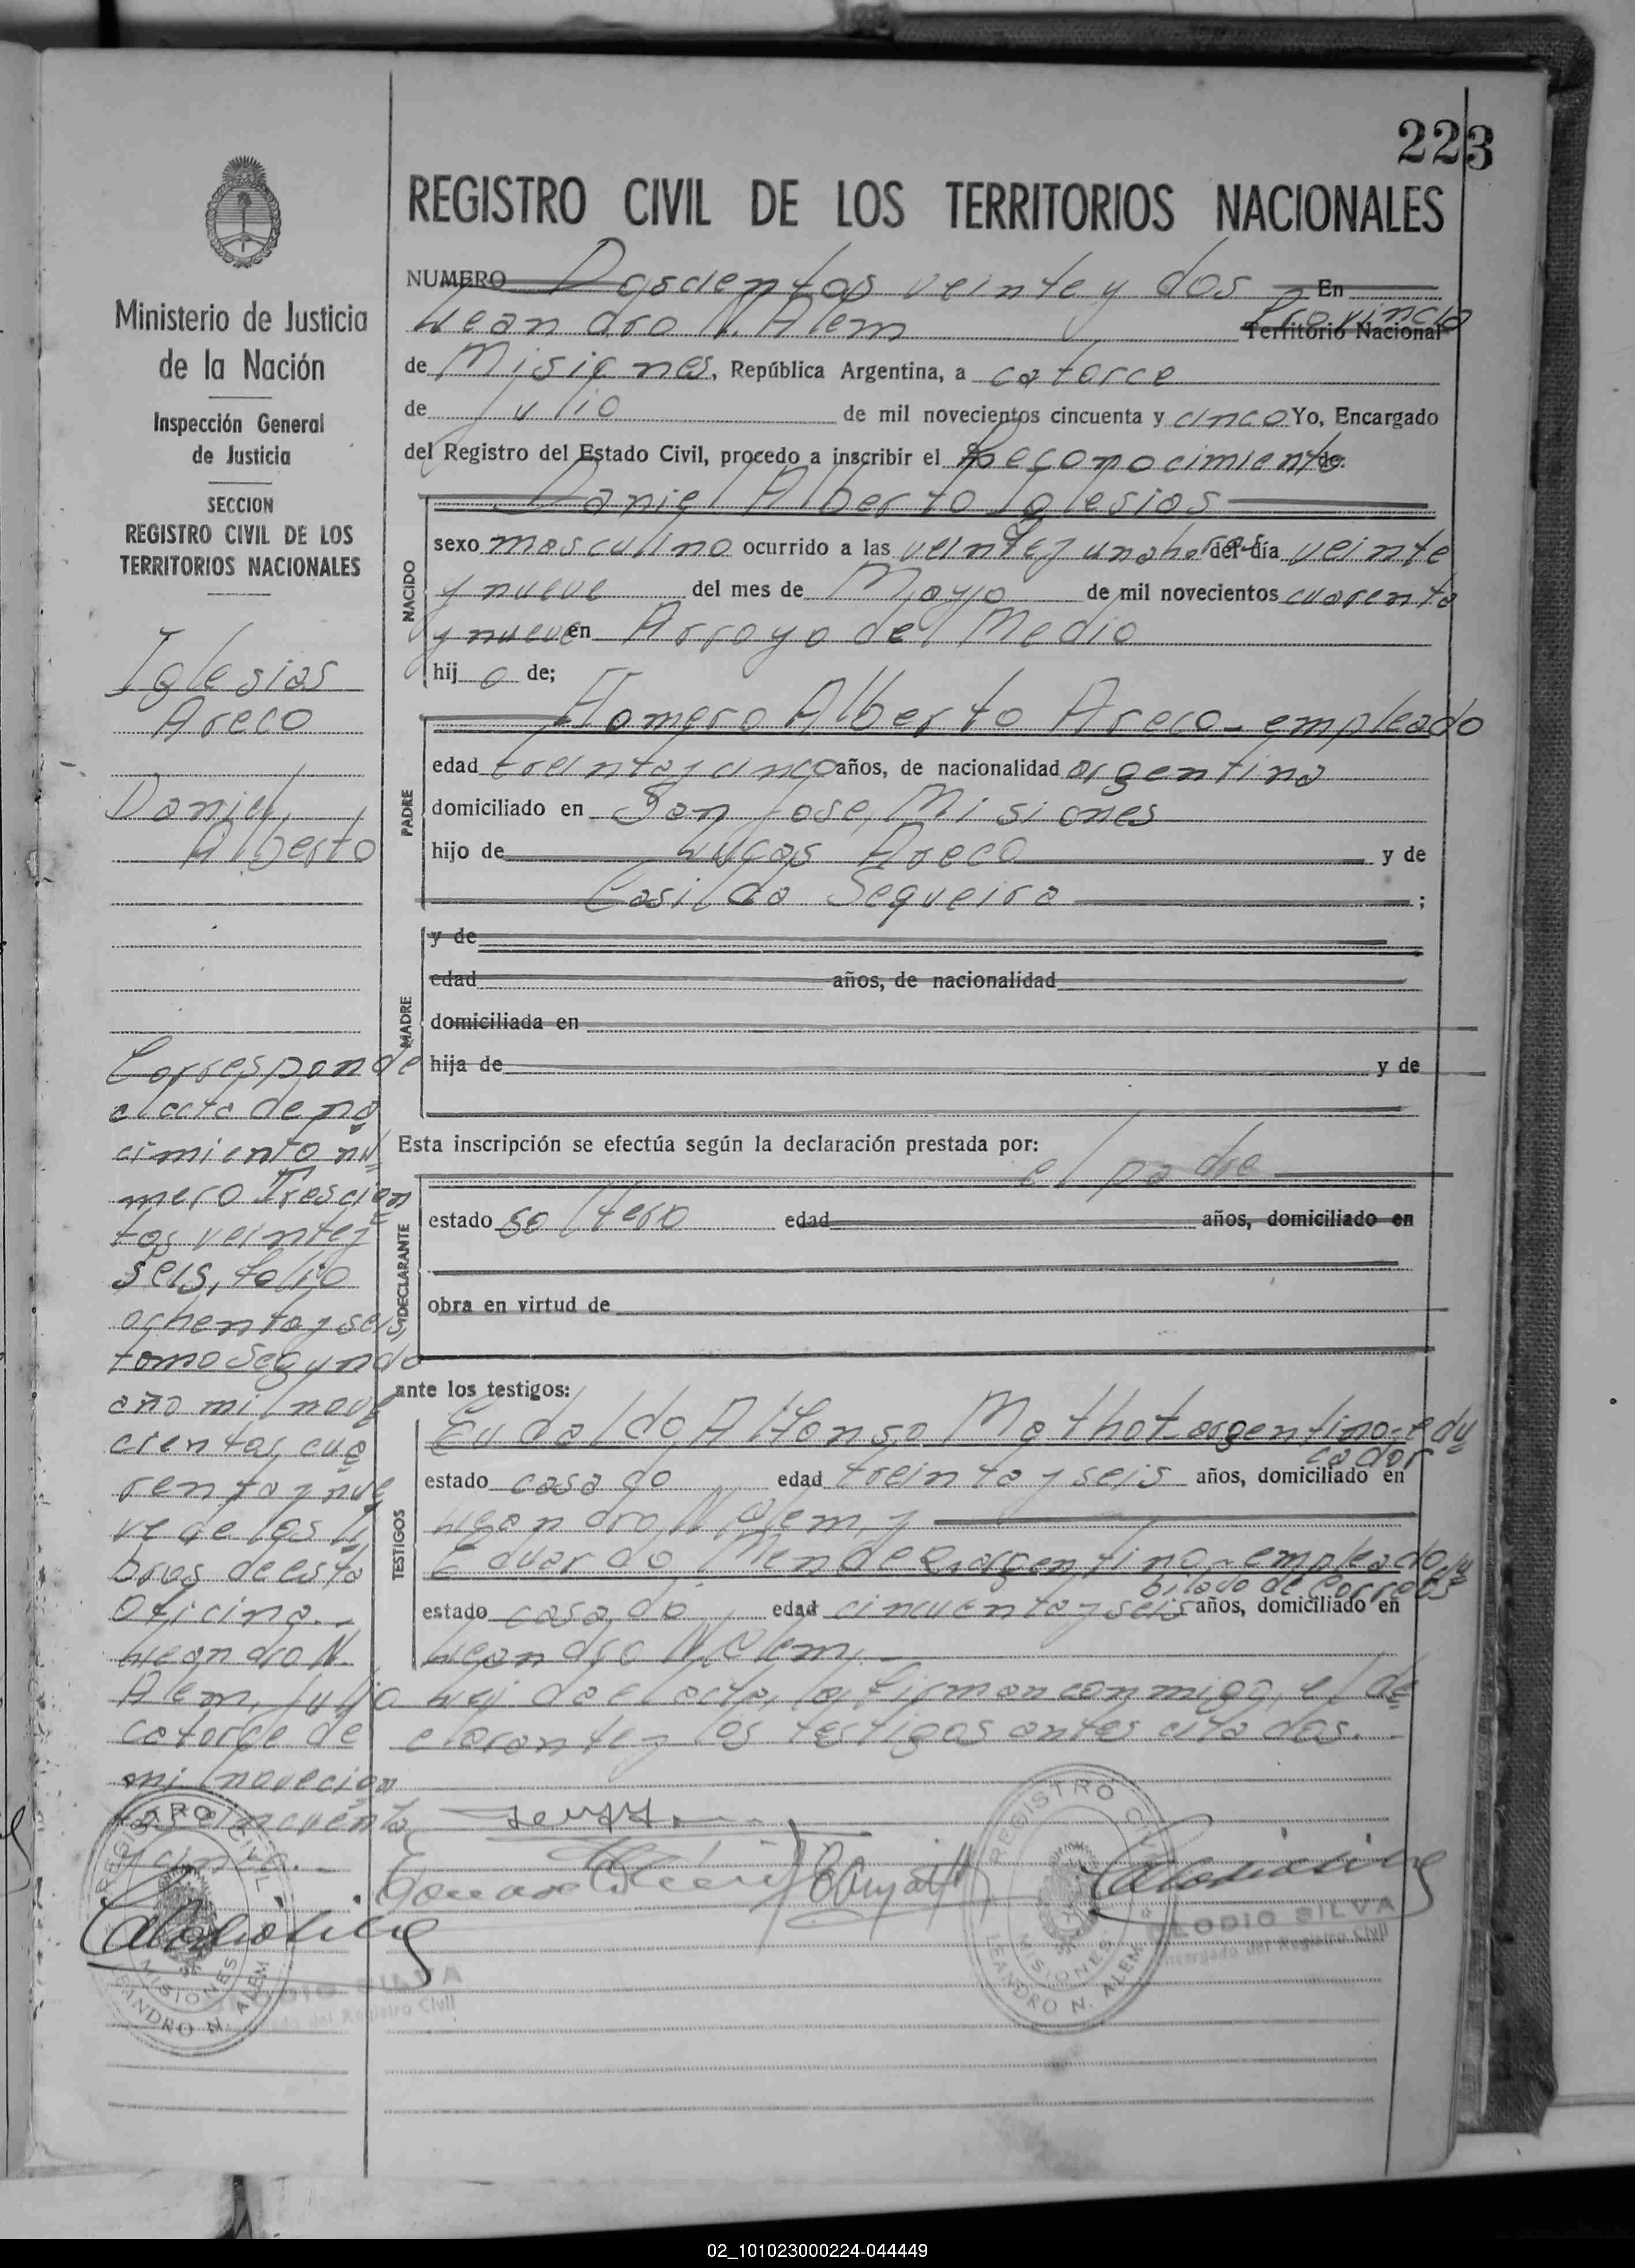 223
REGISTRO CIVIL DE LOS TERRITORIOS NACIONALES
NUMERO Doscientos veinte y dos En
Leandro N. Alem Provincia Territorio Nacional
de Misiones, República Argentina, a catorce
de Julio de mil novecientos cincuenta y cinco Yo, Encargado
del Registro del Estado Civil, procedo a inscribir el Reconocimiento de:
NACIDO
Daniel Alberto Iglesias
sexo masculino ocurrido a las veinte y una horas del día veinte
y nueve del mes de Mayo de mil novecientos cuarenta
y nueve en Arroyo del Medio
hijo de;
PADRE
Homero Alberto Areco - empleado
edad treinta y cinco años, de nacionalidad argentina
domiciliado en San Jose, Misiones
hijo de Lucas Areco y de
Casilda Sequeira ;
MADRE
y de
edad años, de nacionalidad
domiciliada en
hija de y de
Esta inscripción se efectúa según la declaración prestada por:
el padre
DECLARANTE
estado soltero edad años, domiciliado en
obra en virtud de
ante los testigos:
TESTIGOS
Eudaldo Alfonso Mathot - argentino - edu
cador
estado casado edad treinta y seis años, domiciliado en
Leandro N. Alem, y
Eduardo Mendez, argentino - empleado ju
bilado de Correos
estado casado edad cincuenta y seis años, domiciliado en
Leandro N. Alem.
Leída el acta, la firman conmigo, el de
clarante y los testigos antes citados.
REGISTRO CIVIL
MISIONES
LEANDRO N. ALEM
CLODIO SILVA
Encargado del Registro Civil
Ministerio de Justicia
de la Nación
Inspección General
de Justicia
SECCION
REGISTRO CIVIL DE LOS
TERRITORIOS NACIONALES
Iglesias
Areco
Daniel
Alberto
Corresponde
al acta de na
cimiento nú
mero Trescien
tos veinte y
seis, folio
ochenta y seis,
tomo Segundo
año mil nove
cientos cua
renta y nue
ve de los li
bros de esta
Oficina.
Leandro N.
Alem, Julio
catorce de
mil novecien
tos cincuenta
y cinco.
REGISTRO CIVIL
MISIONES
LEANDRO N. ALEM
CLODIO SILVA
Encargado del Registro Civil
02_101023000224-044449